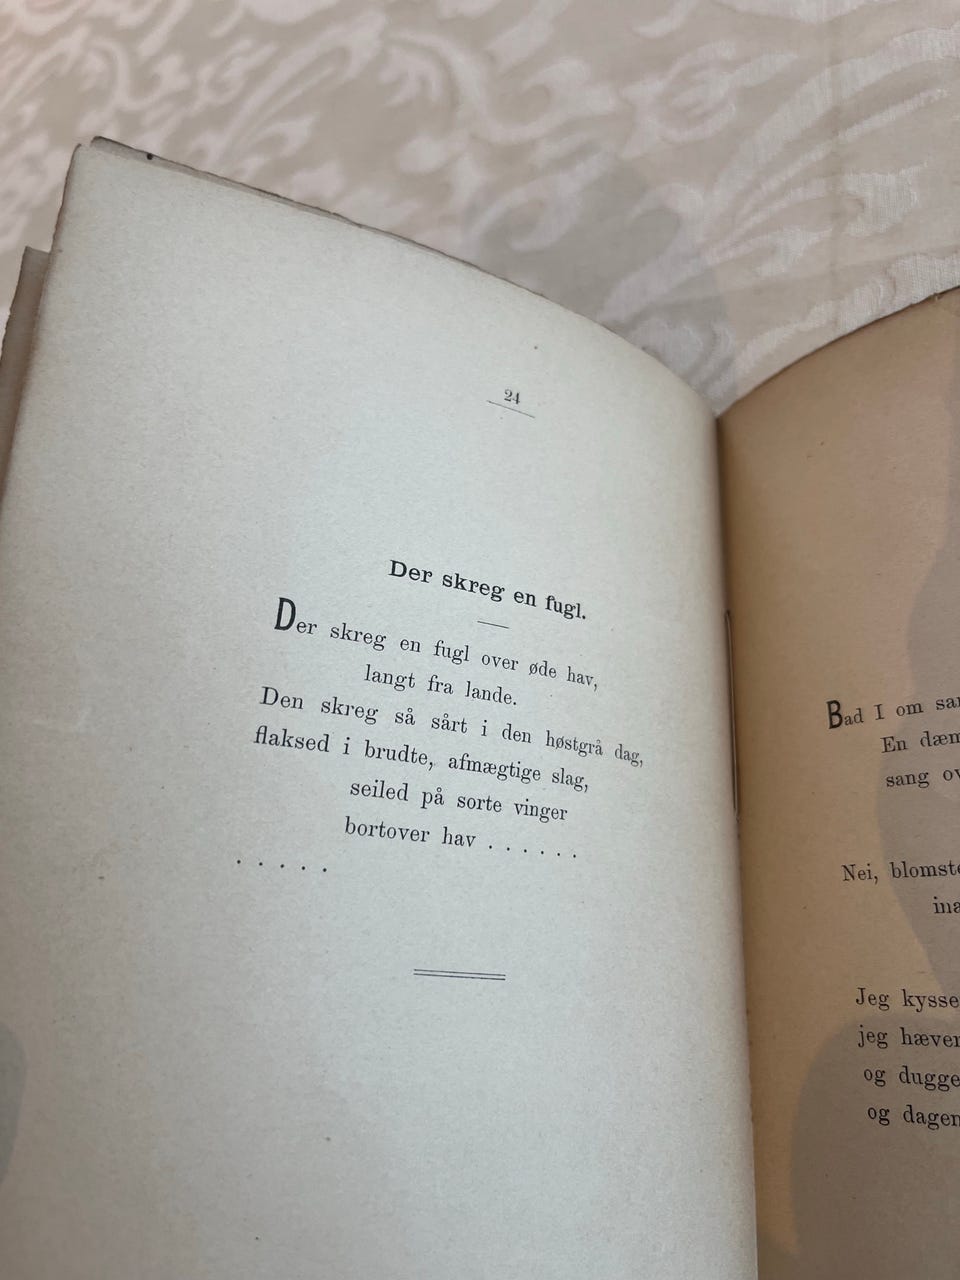 24
Der skreg en fugl.
Der skreg en fugl over øde hav,
langt fra lande.
Den skreg så sårt i den høstgrå dag,
flaksed i brudte, afmægtige slag,
seiled på sorte vinger
bortover hav . . . . . .
. . . . .
Bad I om
En
sang
Nei,
Jeg
jeg
og
og